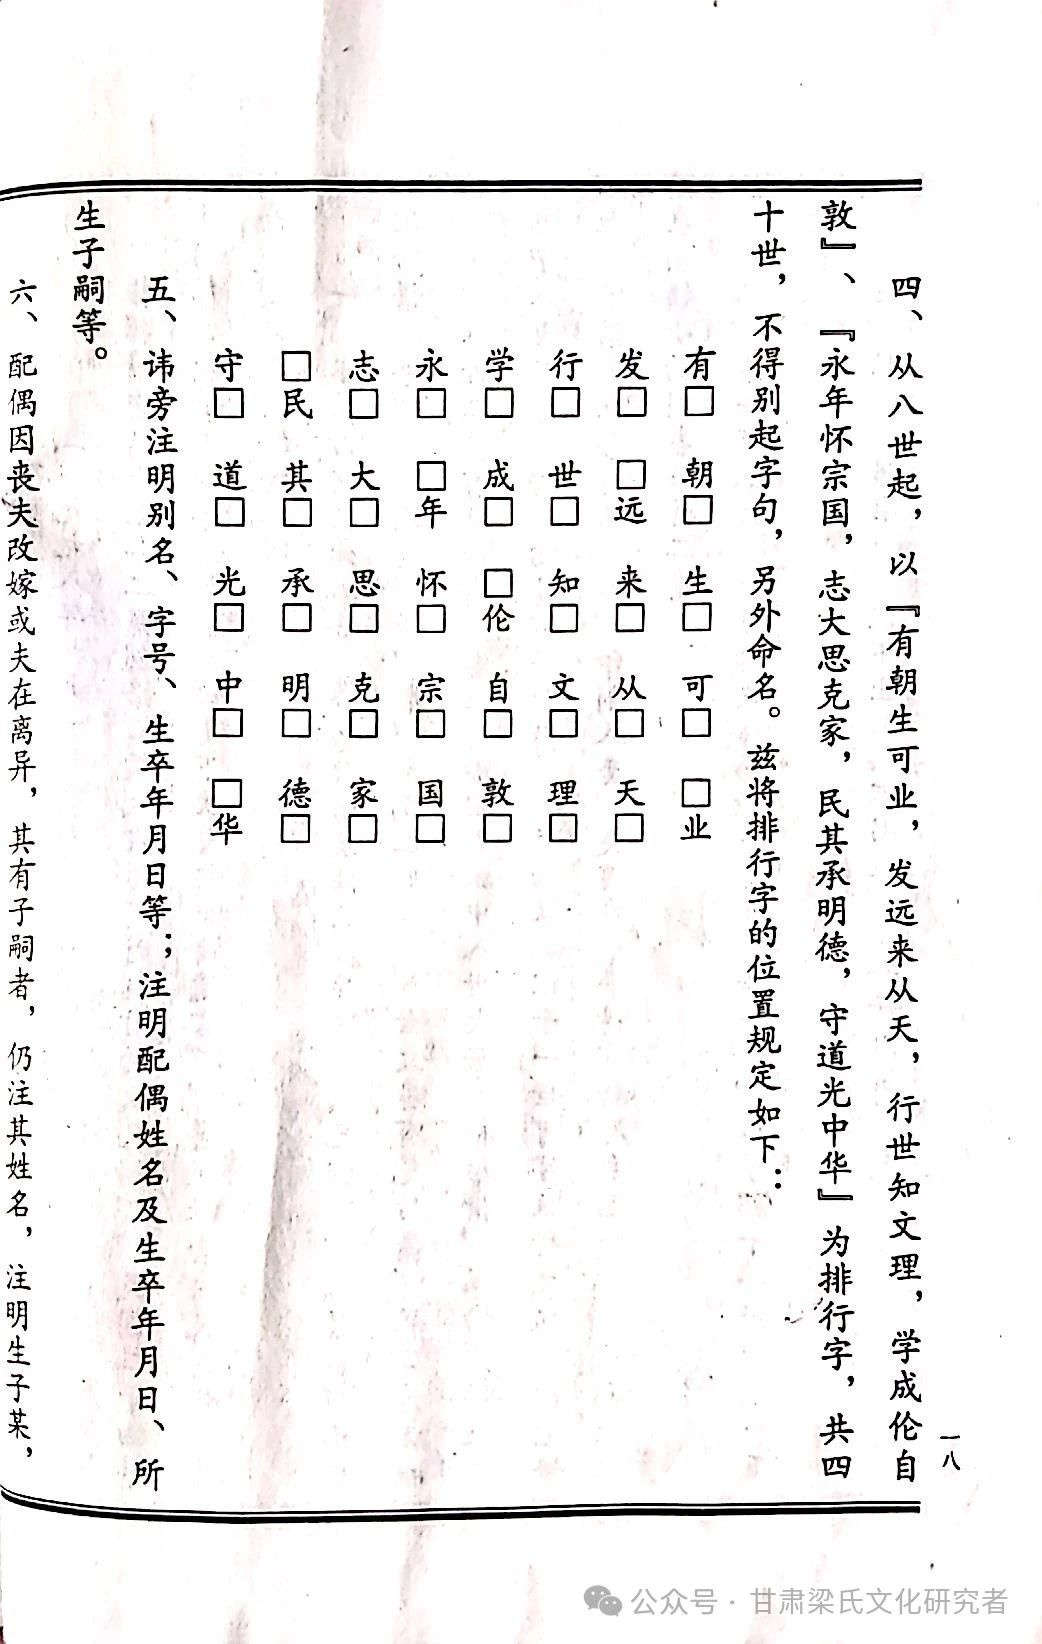 四、从八世起，以『有朝生可业，发远来从天，行世知文理，学成伦自
敦』、『永年怀宗国，志大思克家，民其承明德，守道光中华』为排行字，共四
十世，不得别起字句，另外命名。兹将排行字的位置规定如下：
有□ 朝□ 生□ 可□ □业
发□ □远 来□ 从□ 天□
行□ 世□ 知□ 文□ 理□
学□ 成□ □伦 自□ 敦□
永□ □年 怀□ 宗□ 国□
志□ 大□ 思□ 克□ 家□
□民 其□ 承□ 明□ 德□
守□ 道□ 光□ 中□ □华
五、讳旁注明别名、字号、生卒年月日等；注明配偶姓名及生卒年月日、所
生子嗣等。
六、配偶因丧夫改嫁或夫在离异，其有子嗣者，仍注其姓名，注明生子某，
一八
公众号·甘肃梁氏文化研究者